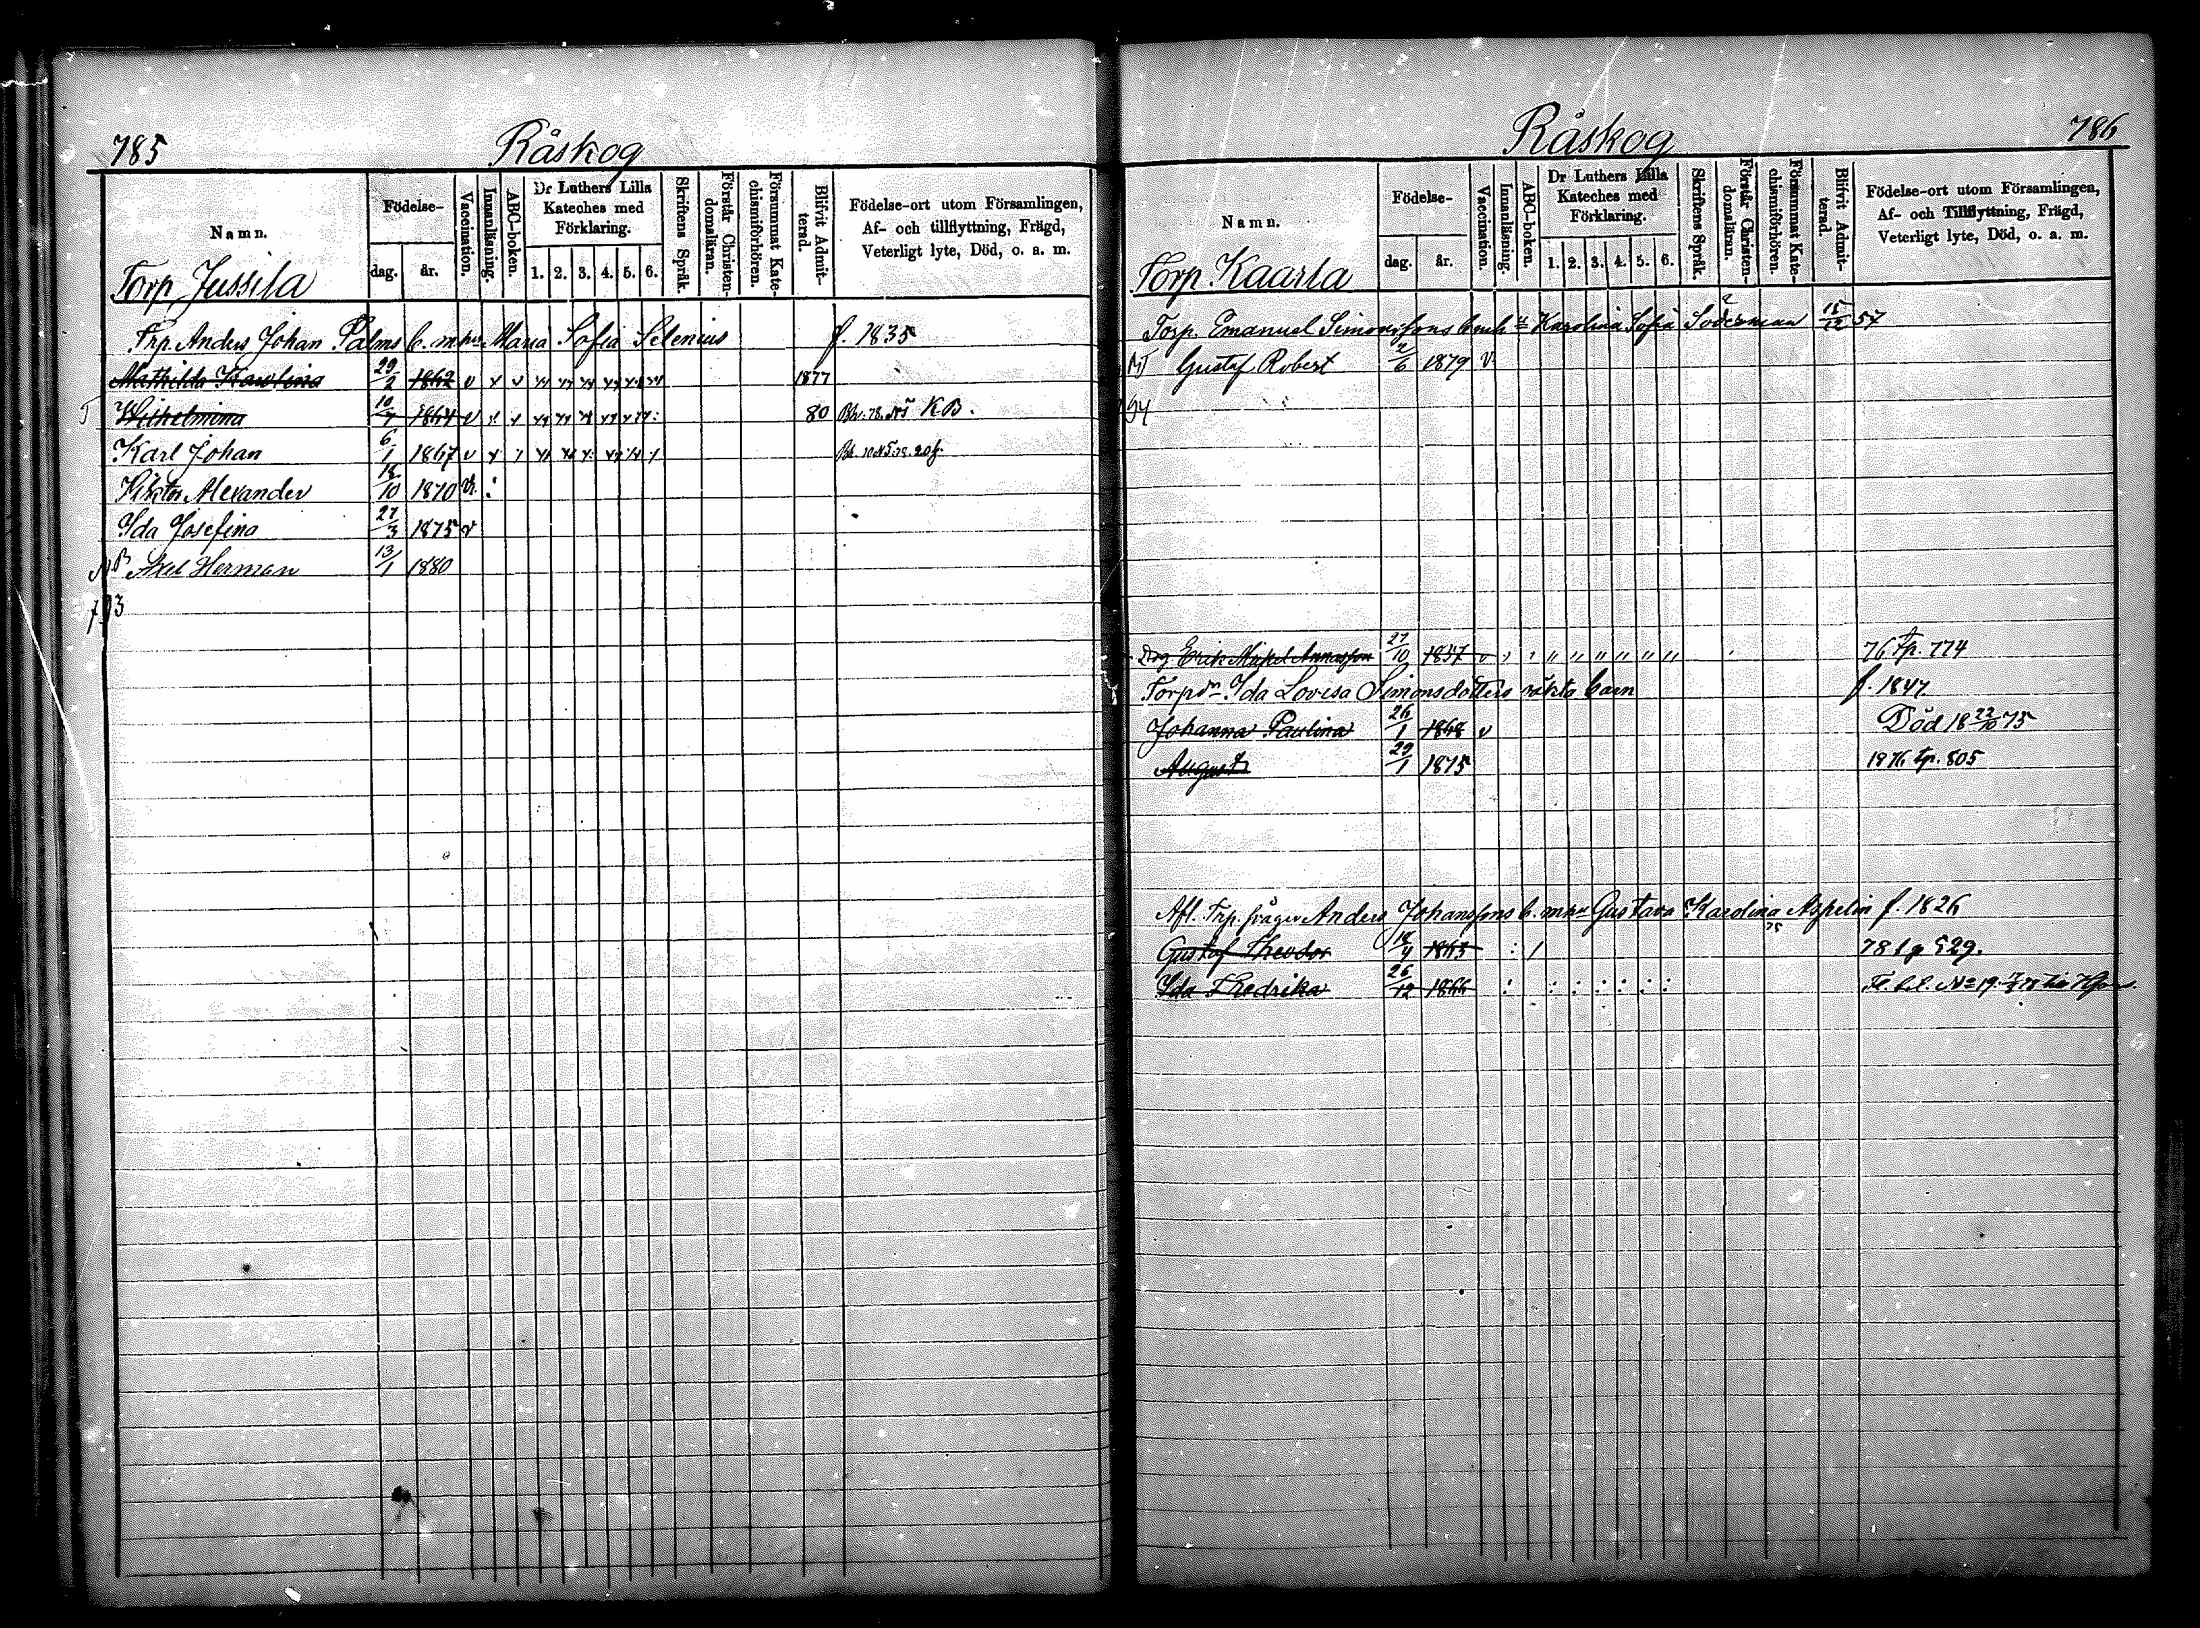 785
Råskog
Namn.
Födelse-
dag.
år.
Vaccination.
Innanläsning.
ABC-boken.
Dr Luthers Lilla
Kateches med
Förklaring.
1. 2. 3. 4. 5. 6.
Skriftens Språk.
Förstår Christen-
domsläran.
Försummat Kate-
chismiförhören.
Blifvit Admit-
terad.
Födelse-ort utom Församlingen,
Af- och tillflyttning, Frägd,
Veterligt lyte, Död, o. a. m.
Torp Jussila
Trp. Anders Johan Palms b. m. hu Maria Sofia Selenius f. 1835
Mathilda Karolina 29/2 1862 v 1877
Wilhelmina 10/4 1864 v 80 KB.
Karl Johan 6/1 1867 v
Viktor Alexander 18/10 1870
Ida Josefina 27/3 1875 v
Axel Herman 13/1 1880
793
Råskog
786
Namn.
Födelse-
dag.
år.
Vaccination.
Innanläsning.
ABC-boken.
Dr Luthers Lilla
Kateches med
Förklaring.
1. 2. 3. 4. 5. 6.
Skriftens Språk.
Förstår Christen-
domsläran.
Försummat Kate-
chismiförhören.
Blifvit Admit-
terad.
Födelse-ort utom Församlingen,
Af- och Tillflyttning, Frägd,
Veterligt lyte, Död, o. a. m.
Torp Kaarla
Torp. Emanuel Simonssons b. m. h Karolina Sofia Söderman 15/12 57
Gustaf Robert 2/6 1879 v
Erik Mikel Annasson 27/10 1857 v 76 Tp. 774
Torp dr Ida Lovisa Simonsdotters oäkta barn f. 1847
Johanna Paulina 26/1 1868 v Död 18 22/10 75
August 29/1 1875 1876 tp. 805
Afl. Trp. Anders Johanssons b. m. hu Gustava Karolina Aspelin f. 1826
Gustaf Theodor 18/4 1863 78 tp 529.
Ida Fredrika 26/12 1866